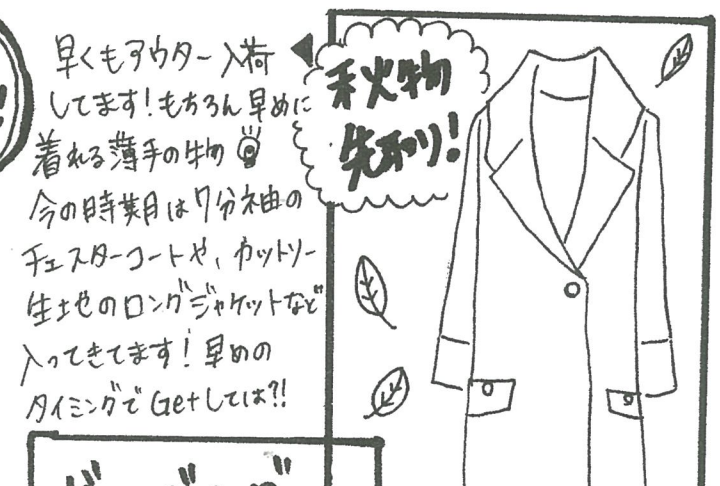 早くもアウター入荷
してます!もちろん早めに
着れる薄手の物
今の時期は7分袖の
チェスターコートや、カットソー
生地のロングジャケットなど
入ってきてます!早めの
タイミングでGetしては?!
秋物
先取り!